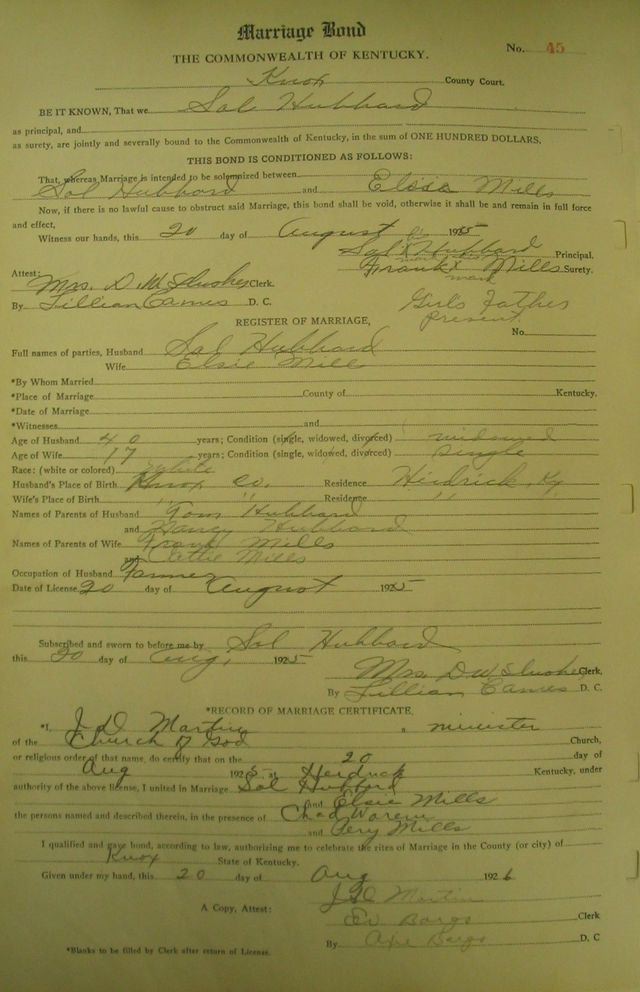 Marriage Bond
No. 45
THE COMMONWEALTH OF KENTUCKY.
Knox County Court.
BE IT KNOWN, That we Sol Hubbard
as principal, and
as surety, are jointly and severally bound to the Commonwealth of Kentucky, in the sum of ONE HUNDRED DOLLARS,
THIS BOND IS CONDITIONED AS FOLLOWS:
That, whereas Marriage is intended to be solemnized between
Sol Hubbard and Elsie Mills
Now, if there is no lawful cause to obstruct said Marriage, this bond shall be void, otherwise it shall be and remain in full force
and effect,
Witness our hands, this 20 day of August 1925
Sol X Hubbard Principal.
Attest: Frank X Mills Surety.
mark
Mrs. D. W Slusher Clerk.
By Lillian Eames D. C. Girls Father
Present
REGISTER OF MARRIAGE,
No.
Full names of parties, Husband Sol Hubbard
Wife Elsie Mill
*By Whom Married
*Place of Marriage County of Kentucky.
*Date of Marriage
*Witnesses and
Age of Husband 40 years; Condition (single, widowed, divorced) widowed
Age of Wife 17 years; Condition (single, widowed, divorced) Single
Race: (white or colored) White
Husband's Place of Birth Knox Co. Residence Heidrick, Ky.
Wife's Place of Birth " " Residence " "
Names of Parents of Husband Tom Hubbard
and Nancy Hubbard
Names of Parents of Wife Frank Mills
and Mills
Occupation of Husband Farmer
Date of License 20 day of August 1925
Subscribed and sworn to before me by Sol Hubbard
this 20 day of Aug. 1925
Mrs. D W Slusher Clerk,
By Lillian Eames D. C.
*RECORD OF MARRIAGE CERTIFICATE,
*I, J. D. Martin a minister
of the Church of God Church,
or religious order of that name, do certify that on the 20 day of
Aug 1925 at Heidrick Kentucky, under
authority of the above license, I united in Marriage Sol Hubbard
and Elsie Mills
the persons named and described therein, in the presence of Chad
and Mills
I qualified and gave bond, according to law, authorizing me to celebrate the rites of Marriage in the County (or city) of
Knox State of Kentucky.
Given under my hand, this 20 day of Aug 1926
J D Martin
A Copy, Attest: Clerk
By D. C
*Blanks to be filled by Clerk after return of License.